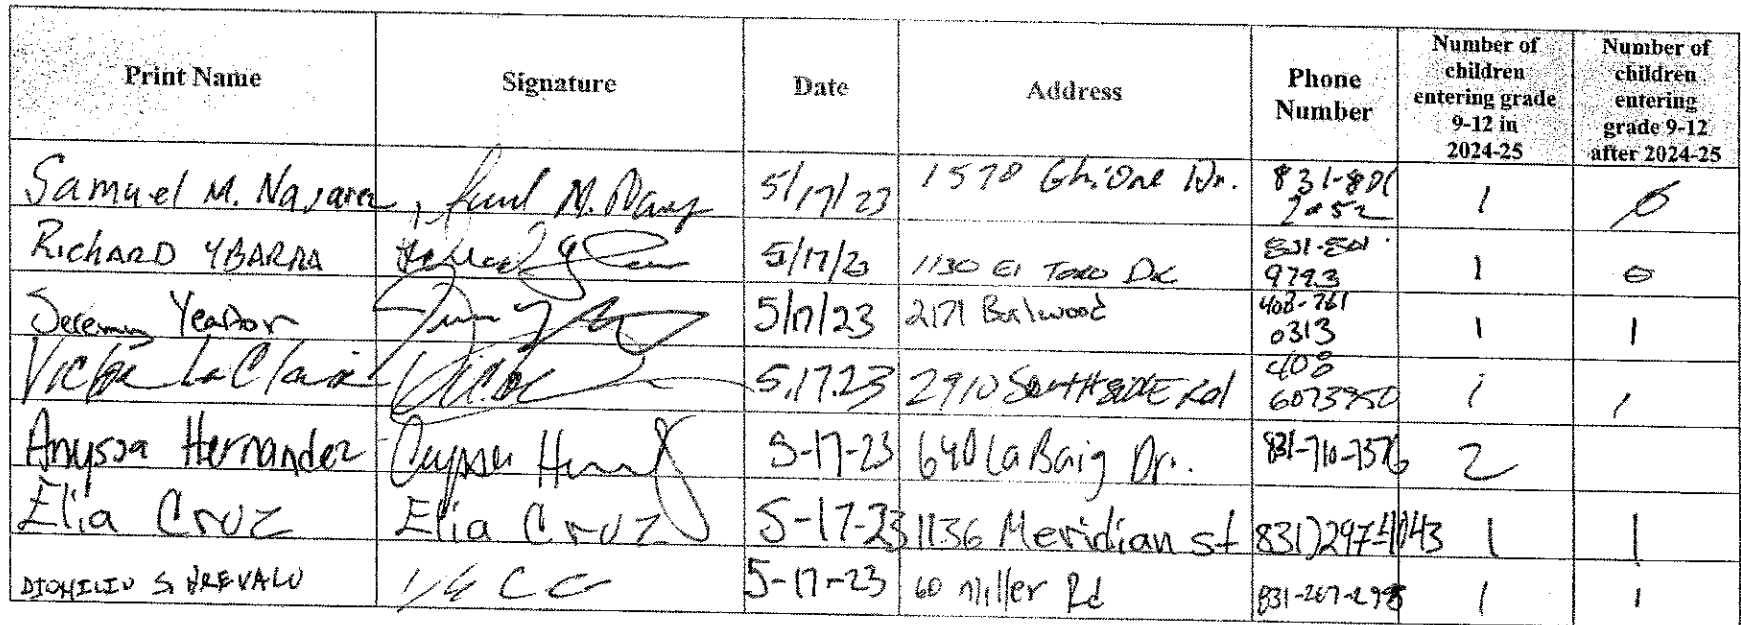 Print Name Signature Date Address Phone Number Number of children entering grade 9-12 in 2024-25 Number of children entering grade 9-12 after 2024-25
Samuel M. 5/17/23 1570 Ghione Dr. 1 0
Richard YBARRA 5/17/23 1130 El Toro Dr 9793 1 0
Jeremy Yeador 5/17/23 2171 408-761 0313 1 1
Victor LaClair 5.17.23 2910 Southside Rd 408 1 1
Anyssa Hernandez 5-17-23 640 La Baig Dr. 831-710-7576 2
Elia Cruz Elia Cruz 5-17-23 1136 Meridian st 1 1
5-17-23 60 Miller Rd 1 1